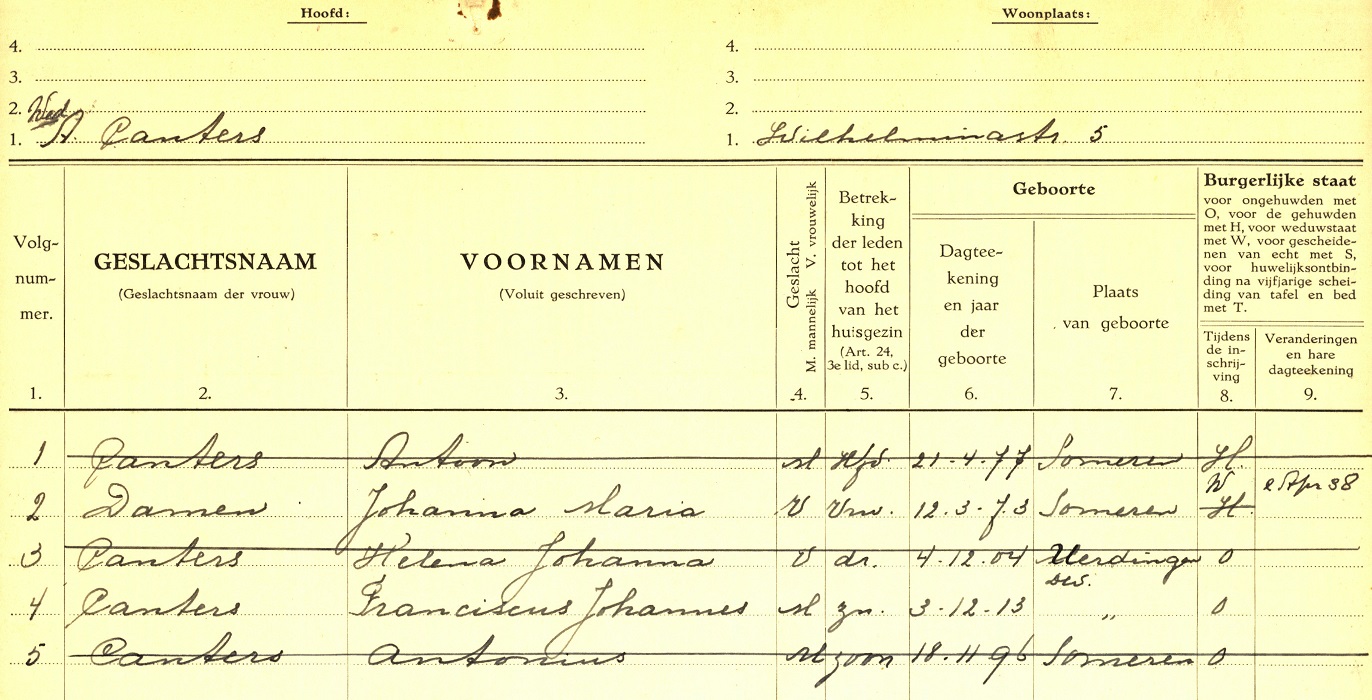 Hoofd: Woonplaats:
4. 4.
3. 3.
2. Wed. 2.
1. A. Canters 1. Wilhelminastr. 5
Volg-
num-
mer.
1.
GESLACHTSNAAM
(Geslachtsnaam der vrouw)
2.
VOORNAMEN
(Voluit geschreven)
3.
Geslacht
M. mannelijk V. vrouwelijk
4.
Betrek-
king
der leden
tot het
hoofd
van het
huisgezin
(Art. 24,
3e lid, sub c.)
5.
Geboorte
Dagtee-
kening
en jaar
der
geboorte
6.
Plaats
van geboorte
7.
Burgerlijke staat
voor ongehuwden met
O, voor de gehuwden
met H, voor weduwstaat
met W, voor gescheide-
nen van echt met S,
voor huwelijksontbin-
ding na vijfjarige schei-
ding van tafel en bed
met T.
Tijdens
de in-
schrij-
ving
8.
Veranderingen
en hare
dagteekening
9.
1 Canters Antoon M Hfd. 21-4-77 Someren H.
2 Damen Johanna Maria V Vrw. 12-3-73 Someren W H. 2 Apr 38
3 Canters Helena Johanna V dr. 4-12-04 Uerdingen O
4 Canters Franciscus Johannes M zn. 3-12-13 " O
5 Canters Antonius M zoon 18-11 96 Someren O